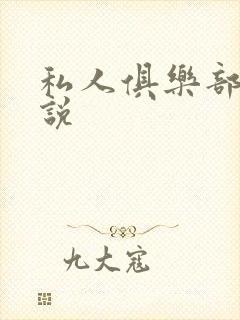 私人俱樂部
說
九大寇